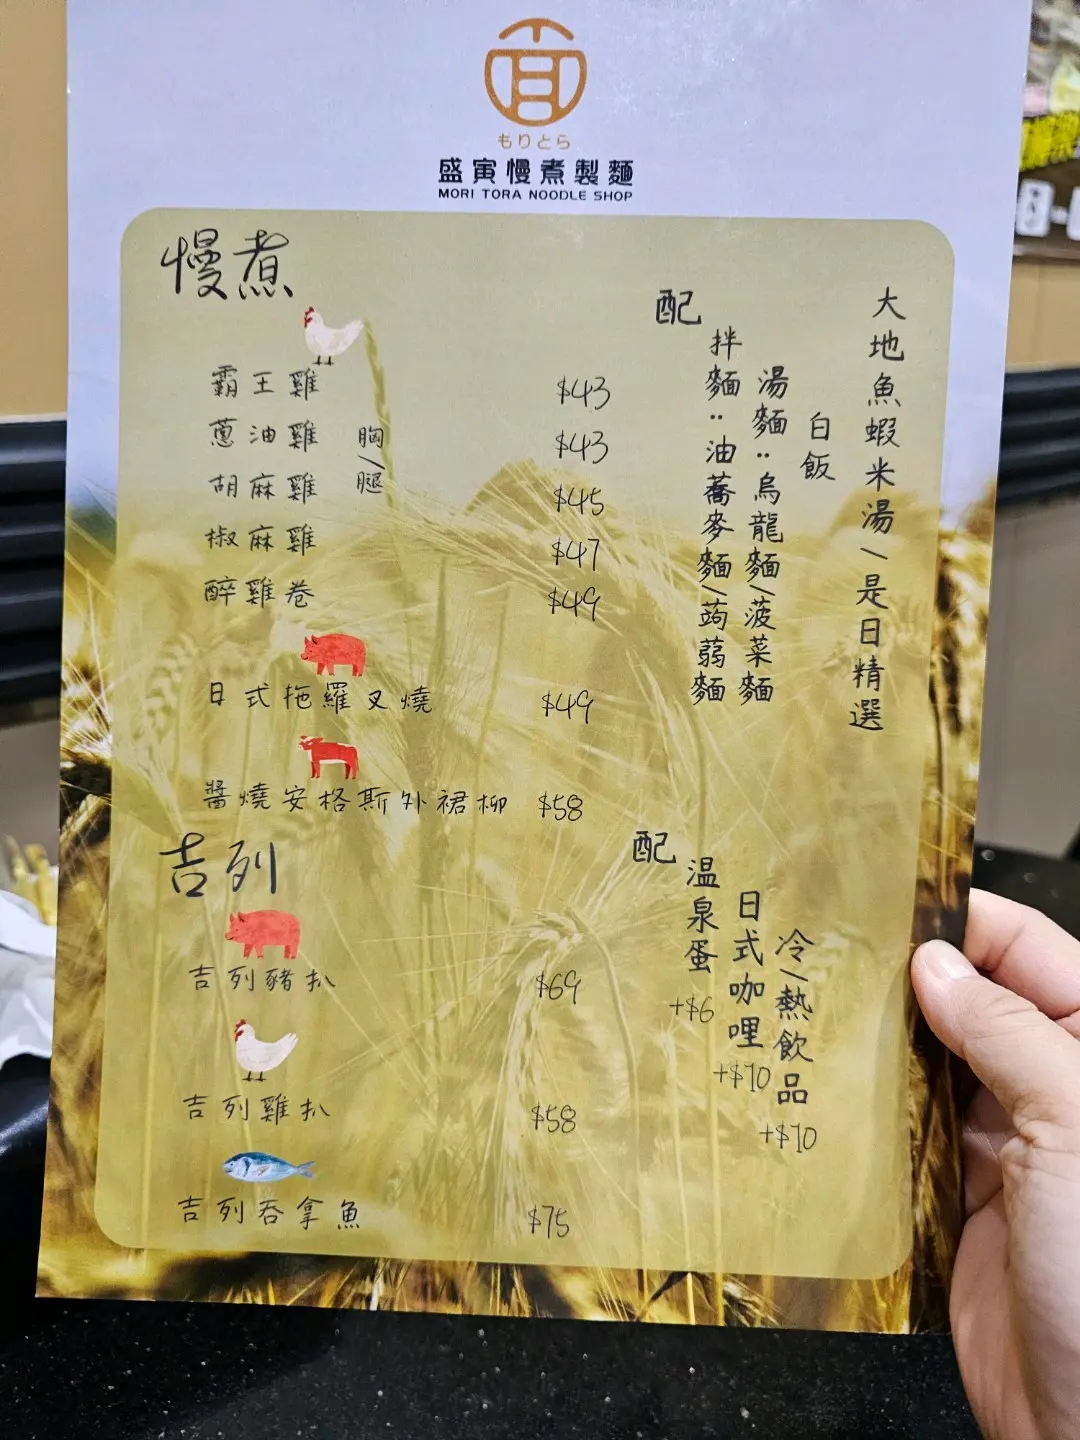 もりとら
盛寅慢煮製麵
MORI TORA NOODLE SHOP
慢煮
霸王雞 $43
蔥油雞 $43
胡麻雞 $45
椒麻雞 $47
醉雞卷 $49
胸/腿
日式拖羅叉燒 $49
醬燒安格斯外裙柳 $58
大地魚蝦米湯/是日精選
配
白飯
湯麵：烏龍麵/菠菜麵
拌麵：油蕎麥麵/蒟蒻麵
吉列
吉列豬扒 $69
吉列雞扒 $58
吉列吞拿魚 $75
配
溫泉蛋 +$6
日式咖哩 +$10
冷/熱飲品 +$10